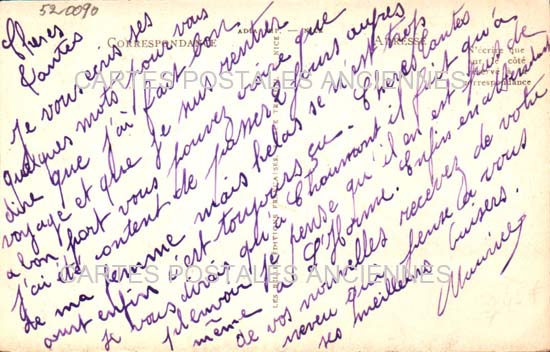 52-0090
CORRESPONDANCE
ADRESSE
N'écrire que
sur le côté
réservé à la
correspondance
CARTES POSTALES ANCIENNES
CARTES POSTALES ANCIENNES
Chères
Tantes
Je vous écris ses
quelques mots pour vous
dire que j'ai fait bon
voyage et que je suis rentrer
a bon port vous pouvez croire que
J'ai été content de passer 2 jours auprès
de ma femme mais hélas se n'est trop
court enfin c'est toujours ça. Chères Tantes
Je vous dirais qu'à Chaumont il fait qu'à
pleuvoir je pense qu'il en est de
même à L'Horme. Enfin en attendant
de vos nouvelles recevez de votre
neveu qui pense à vous
ses meilleurs baisers.
Maurice